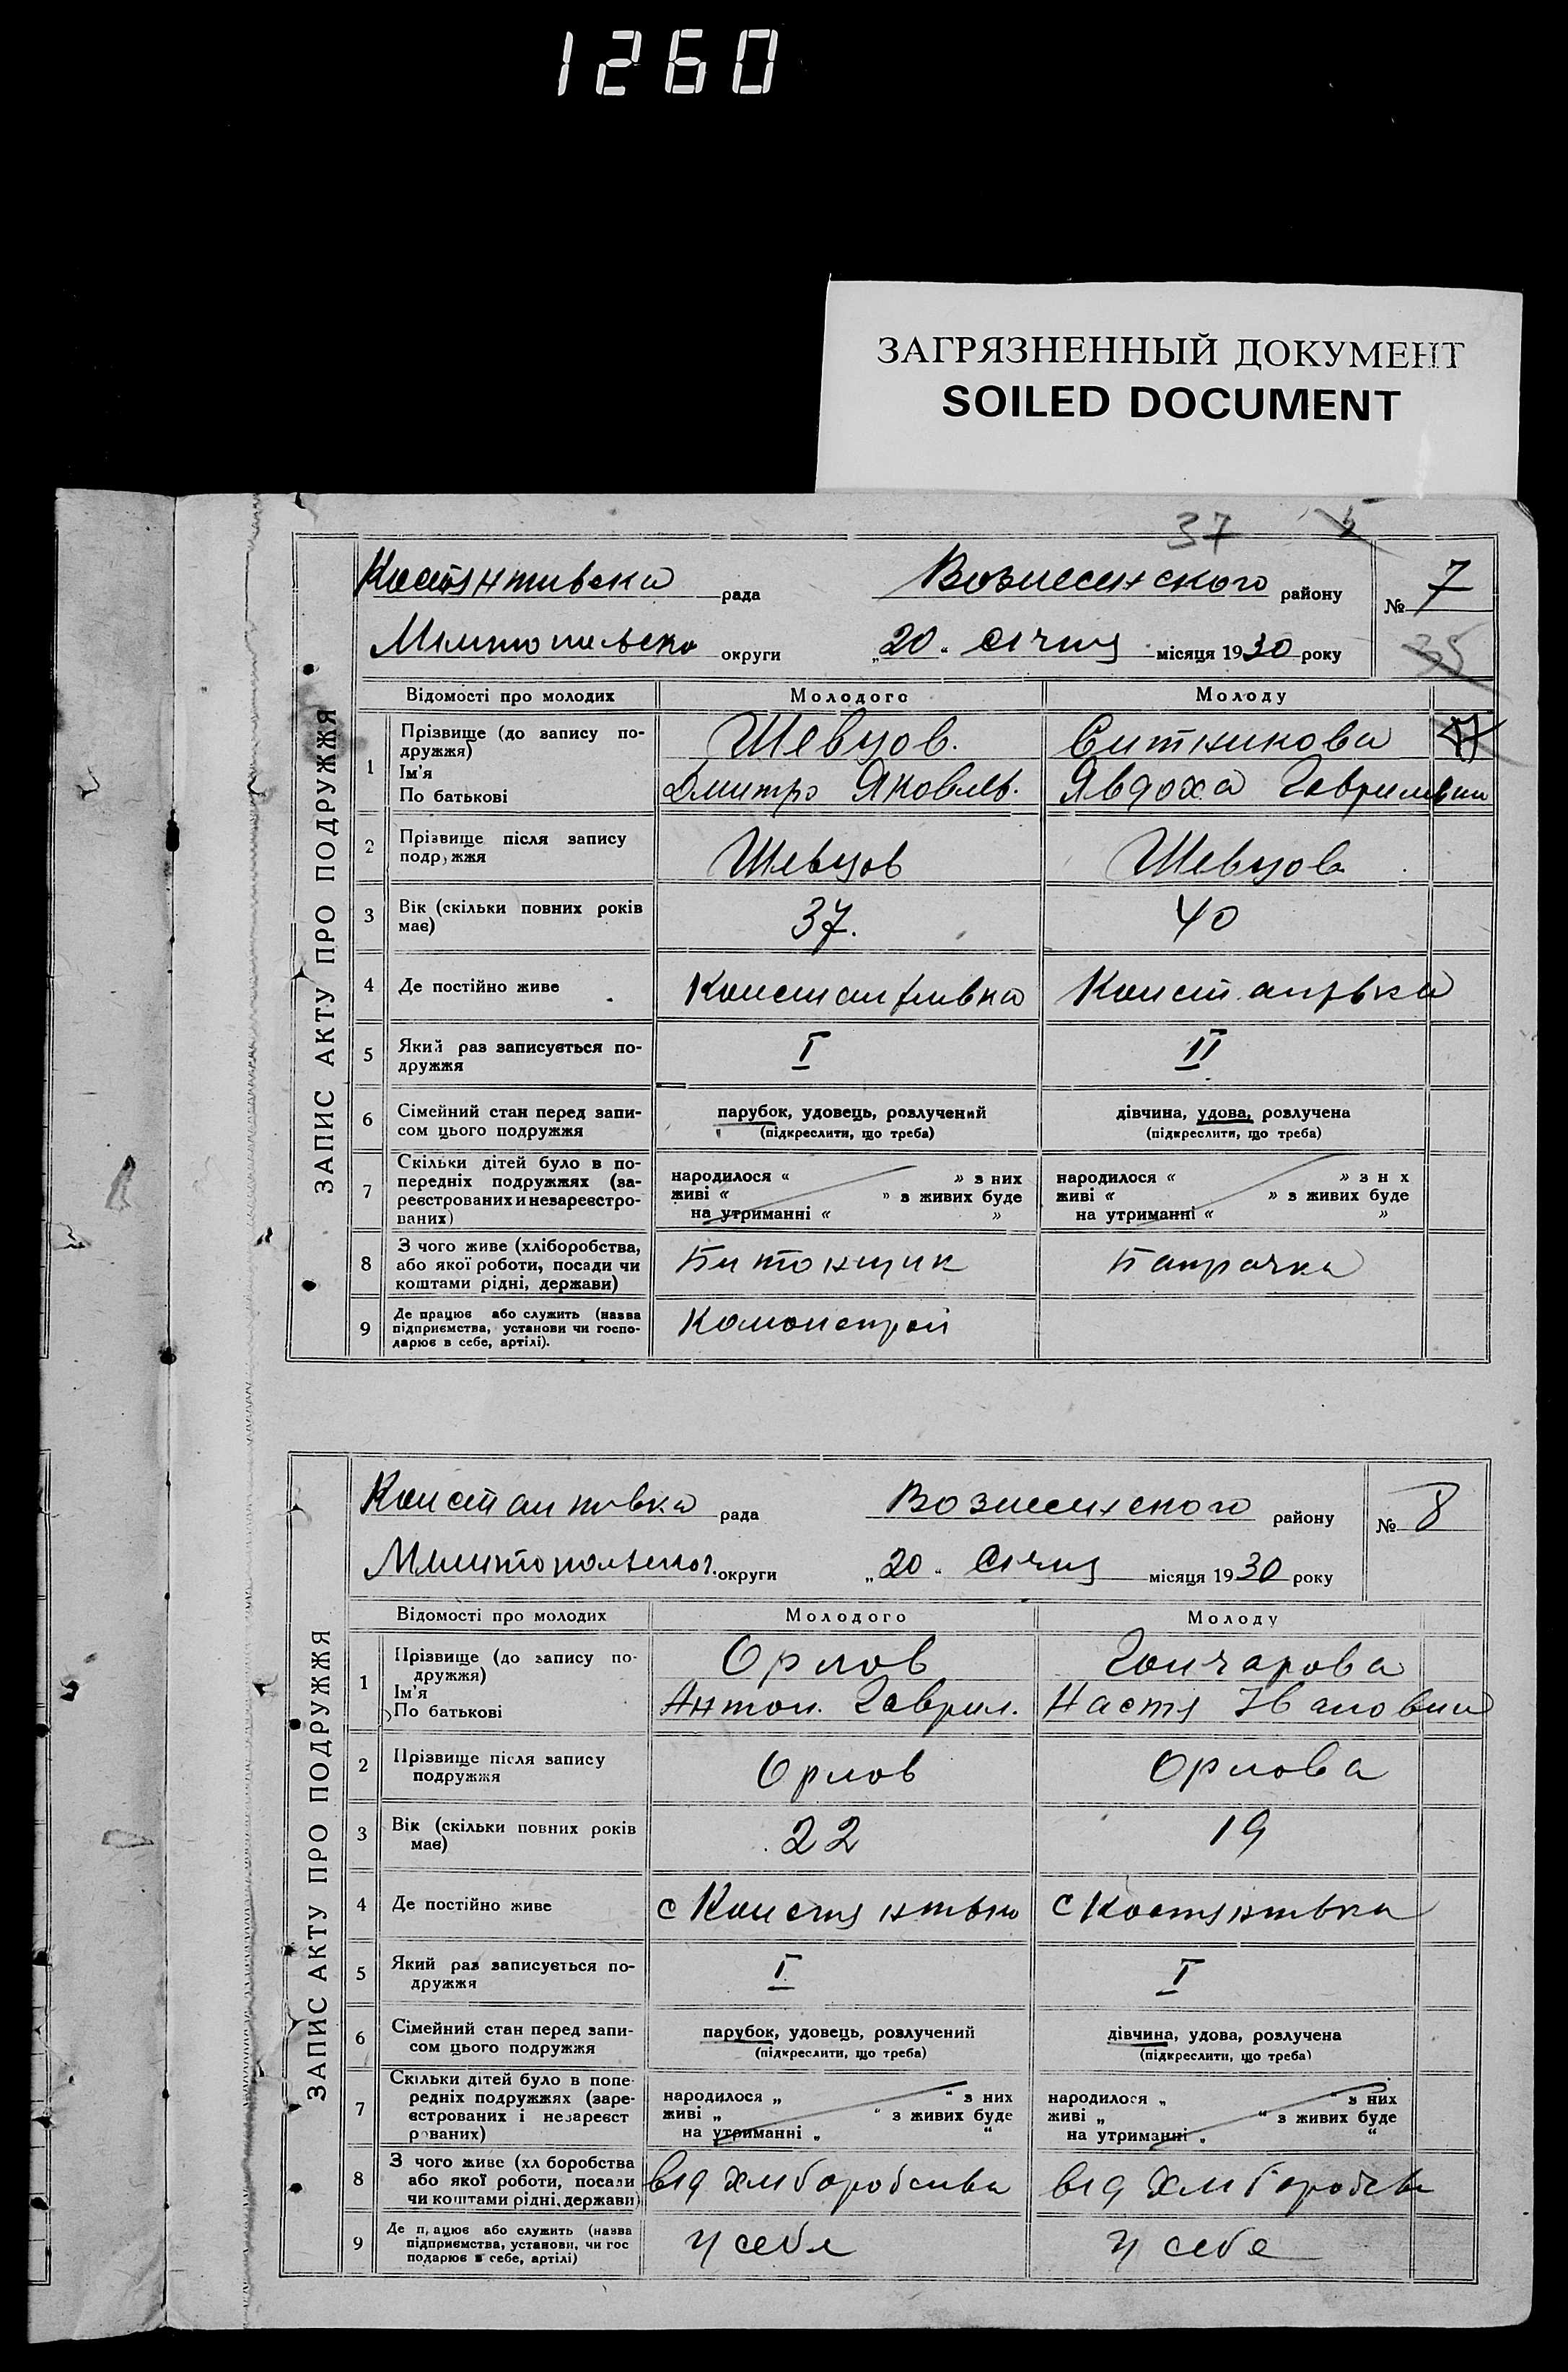 1260
ЗАГРЯЗНЕННЫЙ ДОКУМЕНТ
SOILED DOCUMENT
37
ЗАПИС АКТУ ПРО ПОДРУЖЖЯ
Костянтивска рада Вознесенского району № 7
округи „20“ Січня місяця 1930 року 35
Відомості про молодих Молодого Молоду
1 Прізвище (до запису по-
дружжя) Шевцов. Ситникова
Ім'я
По батькові Дмитро Яковлев. Явдоха Гаврилівни
2 Прізвище після запису
подружжя Шевцов Шевцова
3 Вік (скільки повних років
має) 37. 40
4 Де постійно живе Константивка
5 Який раз записується по-
дружжя I II
6 Сімейний стан перед запи-
сом цього подружжя парубок, удовець, розлучений дівчина, удова, розлучена
(підкреслити, що треба) (підкреслити, що треба)
7 Скільки дітей було в по-
передніх подружжях (за-
реєстрованих и незареєстро-
ваних)
народилося « » з них народилося « » з н х
живі « » з живих буде живі « » з живих буде
на утриманні « » на утриманні « »
8 З чого живе (хліборобства,
або якої роботи, посади чи
коштами рідні, держави) Битонщик Батрачка
9 Де працює або служить (назва
підприємства, установи чи госпо-
дарює в себе, артілі).
ЗАПИС АКТУ ПРО ПОДРУЖЖЯ
Константивка рада Вознесенского району № 8
округи „20“ Січня місяця 1930 року
Відомості про молодих Молодого Молоду
1 Прізвище (до запису по-
дружжя) Орлов Гончарова
Ім'я
По батькові Антон. Гаврил. Настя Івановни
2 Прізвище після запису
подружжя Орлов Орлова
3 Вік (скільки повних років
має) 22 19
4 Де постійно живе с с Костянтвка
5 Який раз записується по-
дружжя I I
6 Сімейний стан перед запи-
сом цього подружжя парубок, удовець, розлучений дівчина, удова, розлучена
(підкреслити, що треба) (підкреслити, що треба)
7 Скільки дітей було в попе-
редніх подружжях (заре-
єстрованих і незареєст
рованих)
народилося „ “ з них народилося „ “ з них
живі „ “ з живих буде живі „ “ з живих буде
на утриманні „ “ на утриманні „ “
8 З чого живе (хл боробства
або якої роботи, посади
чи коштами рідні, держави) від хліборобства від
9 Де п,ацює або служить (назва
підприємства, установи, чи гос
подарює в себе, артілі) у себе у себе